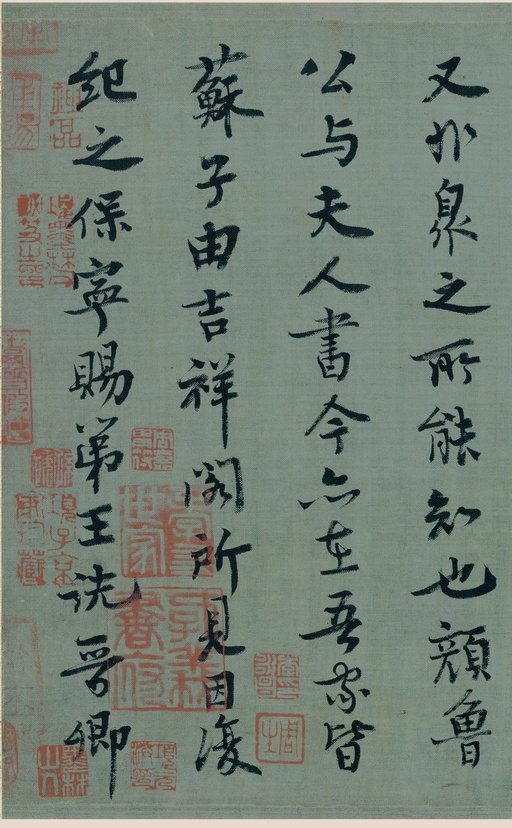 又非泉之所能知也顔魯
公与夫人書今亦在吾家皆
蘇子由吉祥閣所見因復
紀之保寧賜第王詵晉卿